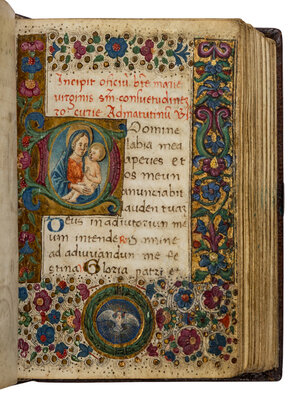 Incipit officiu bte marie
virginis scm consuetudinez
ro curie Admatutinu V
Domine
labia mea
aperies et
os meun
anunciabit
lauden tuaz
Deus in adiutorium me
um intende Domine
ad adiuvandum me fe
stina Gloria patri et